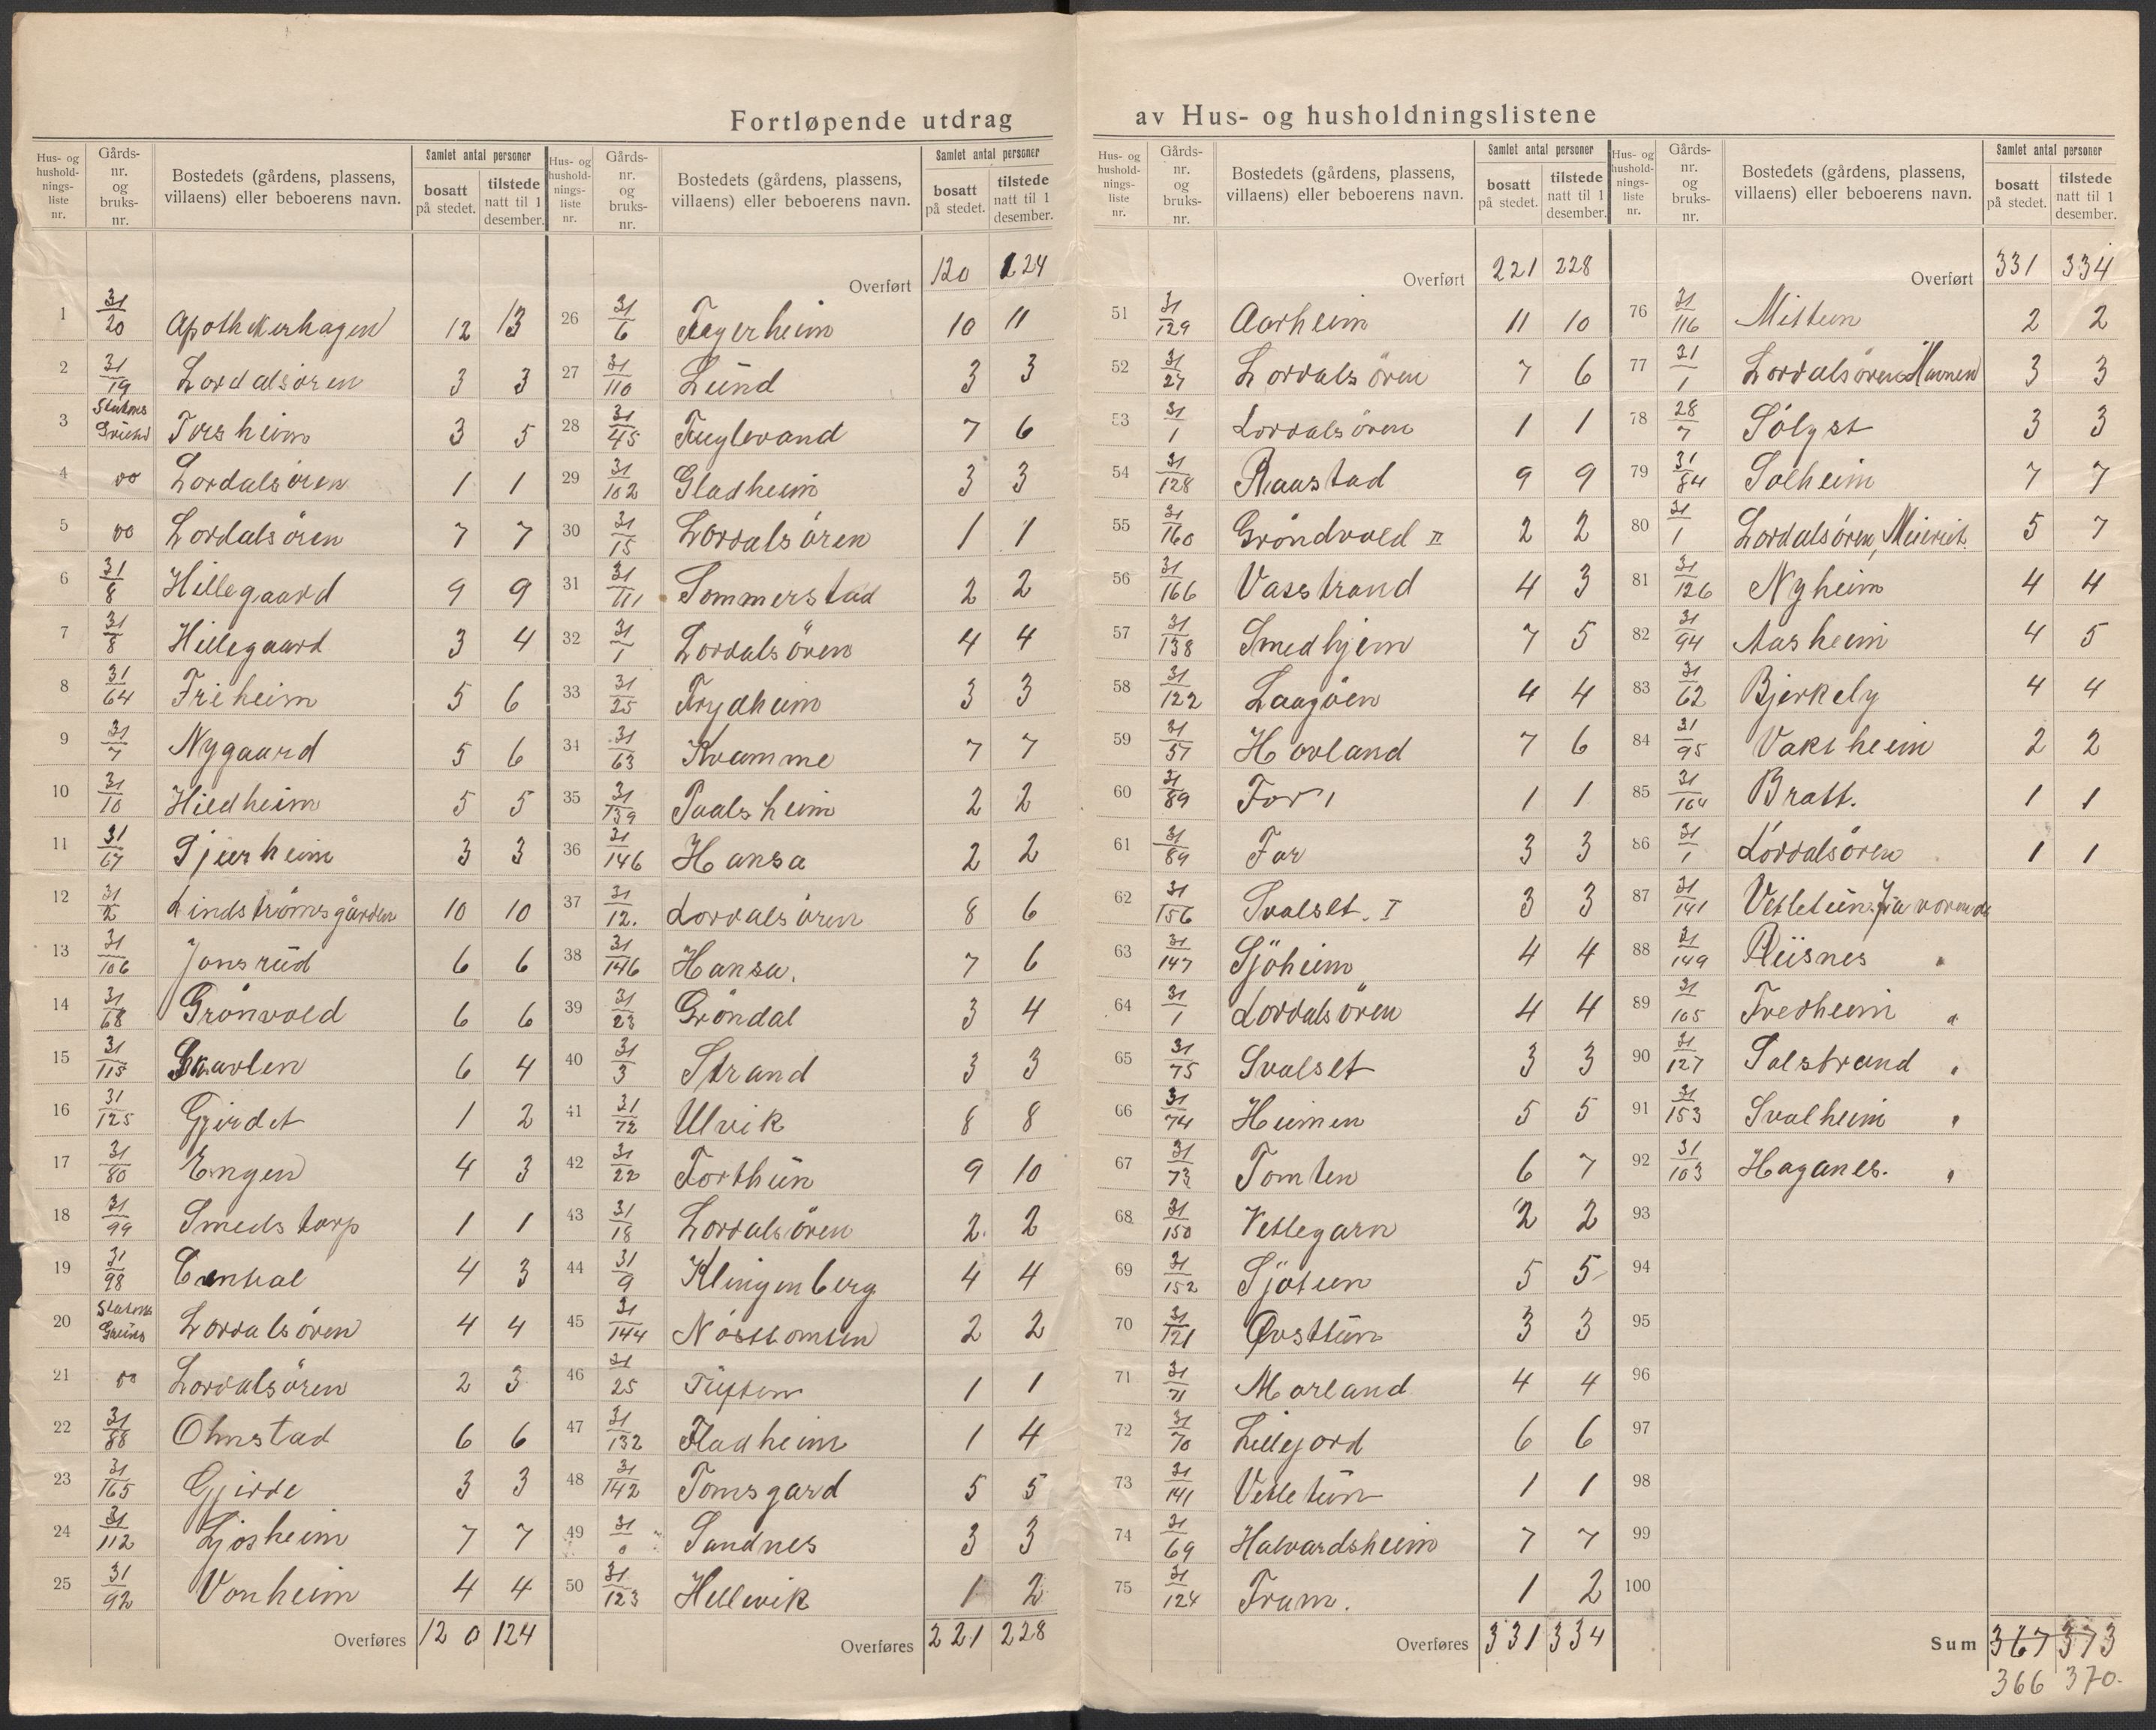 Fortløpende utdrag av Hus- og husholdningslistene
Hus- og husholdnings- liste nr. | Gårds- nr. og bruks- nr. | Bostedets (gårdens, plassens, villaens) eller beboerens navn. | Samlet antal personer bosatt på stedet. | tilstede natt til 1 desember.
1 31/20 Apothekerhagen 12 13
2 31/19 Lærdalsören 3 3
3 Stations Grund Forsheim 3 5
4 do Lærdalsören 1 1
5 do Lærdalsören 7 7
6 31/8 Hillegaard 9 9
7 31/8 Hillegaard 3 4
8 31/64 Friheim 5 6
9 31/7 Nygaard 5 6
10 31/10 Hildheim 5 5
11 31/67 Tjuerheim 3 3
12 31/2 Lindströmsgården 10 10
13 31/106 Jonsrud 6 6
14 31/68 Grönvold 6 6
15 31/115 6 4
16 31/125 Gjerdet 1 2
17 31/80 Engen 4 3
18 31/99 Smedstorp 1 1
19 31/98 Central 4 3
20 Stations Grund Lærdalsören 4 4
21 do Lærdalsören 2 3
22 31/88 Ohnstad 6 6
23 31/165 Gjerde 3 3
24 31/112 Ljosheim 7 7
25 31/92 Vonheim 4 4
Overføres 120 124
Hus- og husholdnings- liste nr. | Gårds- nr. og bruks- nr. | Bostedets (gårdens, plassens, villaens) eller beboerens navn. | Samlet antal personer bosatt på stedet. | tilstede natt til 1 desember.
Overført 120 124
26 31/6 Fagerheim 10 11
27 31/110 Lund 3 3
28 31/45 Fuglevand 7 6
29 31/102 Gladheim 3 3
30 31/15 Lærdalsören 1 1
31 31/111 Sommerstad 2 2
32 31/1 Lærdalsören 4 4
33 31/25 Frydheim 3 3
34 31/63 Kvamme 7 7
35 31/139 Paalsheim 2 2
36 31/146 Hansa 2 2
37 31/12. Lærdalsören 8 6
38 31/146 Hansa. 7 6
39 31/23 Gröndal 3 4
40 31/3 Strand 3 3
41 31/72 Ulvik 8 8
42 31/22 Forthun 9 10
43 31/18 Lærdalsören 2 2
44 31/9 Klingenberg 4 4
45 31/144 Nösttomten 2 2
46 31/25 Tuften 1 1
47 31/132 Fladheim 1 4
48 31/142 Tomsgard 5 5
49 31/0 Sandnes 3 3
50 31/123 Hellevik 1 2
Overføres 221 228
Hus- og husholdnings- liste nr. | Gårds- nr. og bruks- nr. | Bostedets (gårdens, plassens, villaens) eller beboerens navn. | Samlet antal personer bosatt på stedet. | tilstede natt til 1 desember.
Overført 221 228
51 31/129 Aarheim 11 10
52 31/27 Lærdalsören 7 6
53 31/1 Lærdalsören 1 1
54 31/128 Raastad 9 9
55 31/160 Gröndvold II 2 2
56 31/166 Vasstrand 4 3
57 31/138 Smedhjem 7 5
58 31/122 Laagöen 4 4
59 31/57 Hovland 7 6
60 31/89 Tor 1 1
61 31/89 Tor 3 3
62 31/156 Svalset. I 3 3
63 31/147 Sjöheim 4 4
64 31/1 Lærdalsören 4 4
65 31/75 Svalset 3 3
66 31/74 Heimen 5 5
67 31/73 Tomten 6 7
68 31/150 Vetlegarn 2 2
69 31/152 Sjötun 5 5
70 31/121 Øvsttun 3 3
71 31/71 Morland 4 4
72 31/70 Lillejord 6 6
73 31/141 Vetletun 1 1
74 31/69 Halvardsheim 7 7
75 31/124 Fram. 1 2
Overføres 331 334
Hus- og husholdnings- liste nr. | Gårds- nr. og bruks- nr. | Bostedets (gårdens, plassens, villaens) eller beboerens navn. | Samlet antal personer bosatt på stedet. | tilstede natt til 1 desember.
Overført 331 334
76 31/116 Mittun 2 2
77 31/1 Lærdalsören Havnen 3 3
78 28/7 Sölyst 3 3
79 31/84 Solheim 7 7
80 31/1 Lærdalsören, Meieriet. 5 7
81 31/126 Nyheim 4 4
82 31/94 Aasheim 4 5
83 31/62 Bjerkely 4 4
84 31/95 Vaksheim 2 2
85 31/164 Bratt. 1 1
86 31/1 Lærdalsören 1 1
87 31/141 Vetletun. fraværende
88 31/149 Riisnes "
89 31/105 Fredheim "
90 31/127 Solstrand "
91 31/153 Svalheim "
92 31/103 Haganes. "
93
94
95
96
97
98
99
100
Sum 367 373
366 370.